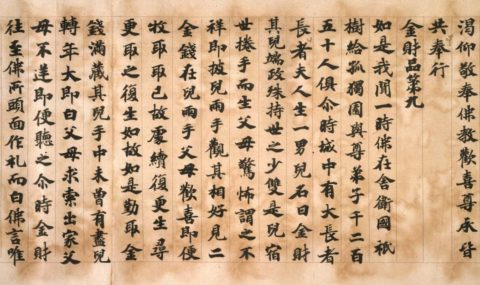 渴仰敬奉佛教歡喜尊承皆
共奉行
金財品第九
如是我聞一時佛在舍衛國祇
樹給孤獨園與尊弟子千二百
五十人俱尒時城中有大長者
長者夫人生一男兒名曰金財
其兒端政殊特世之少雙是兒宿
世捲手而生父母驚怖謂之不
祥即披兒兩手觀其相好見二
金錢在兒兩手父母歡喜即便
收取取已故處續復更生尋
更取之復生如故如是勤取金
錢滿藏其兒手中未曾有盡兒
轉年大即白父母求索出家父
母不逆即便聽之尒時金財
往至佛所頭面作礼而白佛言唯